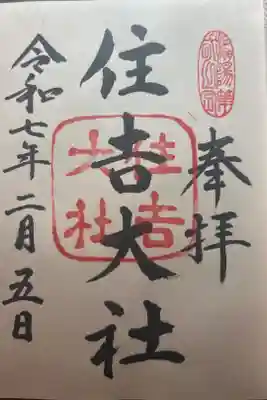 奉拝
住吉大社
住吉
大社
令和七年二月五日